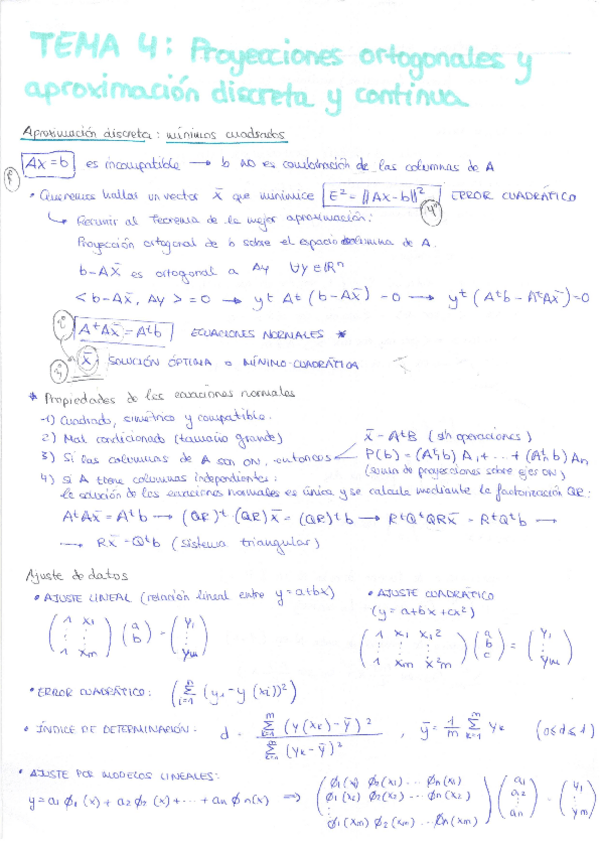 TEMA 4: Proyecciones ortogonales y
aproximación discreta y continua
Aproximación discreta: mínimos cuadrados
1º Ax = b es incompatible → b NO es combinación de las columnas de A
• Queremos hallar un vector x̄ que minimice E² = ||Ax - b||² ERROR CUADRÁTICO
4º
↳ Recurrir al teorema de la mejor aproximación:
Proyección ortogonal de b sobre el espacio columna de A.
b - Ax̄ es ortogonal a Ay ∀y ∈ ℝⁿ
< b - Ax̄, Ay > = 0 → yᵗ Aᵗ (b - Ax̄) = 0 → yᵗ (Aᵗb - AᵗAx̄) = 0
2º AᵗAx̄ = Aᵗb ECUACIONES NORMALES *
3º x̄ SOLUCIÓN ÓPTIMA o MÍNIMO-CUADRÁTICA x̄
* Propiedades de las ecuaciones normales
1) Cuadrado, simétrico y compatible.
2) Mal condicionado (tamaño grande)
3) Si las columnas de A son ON, entonces
x̄ = AᵗB (sin operaciones)
P(b) = (Aᵗ₁b) A₁ + ... + (Aᵗₙb) Aₙ
(suma de proyecciones sobre ejes ON)
4) Si A tiene columnas independientes:
la solución de las ecuaciones normales es única y se calcula mediante la factorización QR:
AᵗAx̄ = Aᵗb → (QR)ᵗ·(QR)x̄ = (QR)ᵗb → RᵗQᵗQRx̄ = RᵗQᵗb →
→ Rx̄ = Qᵗb (sistema triangular)
Ajuste de datos
• AJUSTE LINEAL (relación lineal entre y = a+bx)
(1 x₁ ⋮ ⋮ 1 xm) (a b) = (y₁ ⋮ ym)
• AJUSTE CUADRÁTICO
(y = a+bx+cx²)
(1 x₁ x₁² ⋮ ⋮ ⋮ 1 xm x²m) (a b c) = (y₁ ⋮ ym)
• ERROR CUADRÁTICO: (Σᵐᵢ₌₁ (yᵢ - y(xᵢ))²)
• ÍNDICE DE DETERMINACIÓN: d = Σᵐₖ₌₁ (y(xₖ) - ȳ)² / Σᵐₖ₌₁ (yₖ - ȳ)² , ȳ = 1/m Σᵐₖ₌₁ yₖ (0 ≤ d ≤ 1)
• AJUSTE POR MODELOS LINEALES:
y = a₁ϕ₁(x) + a₂ϕ₂(x) + ... + aₙϕₙ(x) ⇒ (ϕ₁(x₁) ϕ₂(x₁) ... ϕn(x₁)
ϕ₁(x₂) ϕ₂(x₂) ... ϕn(x₂)
⋮
ϕ₁(xm) ϕ₂(xm) ... ϕn(xm)) (a₁ a₂ ⋮ an) = (y₁ ⋮ ym)